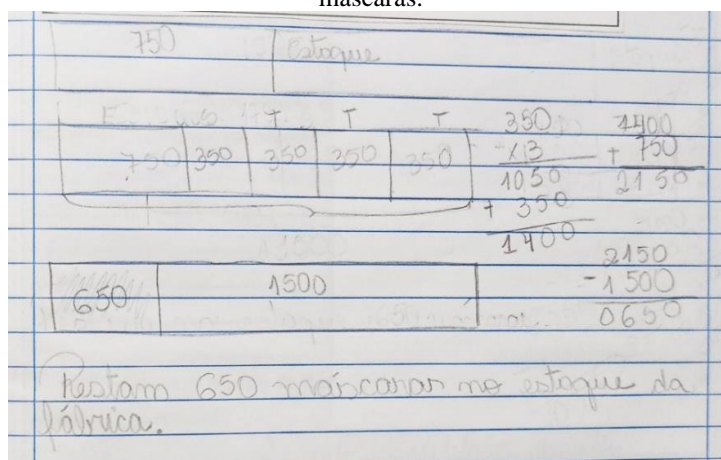 máscaras.
750 Estoque
T T T
750 350 350 350 350
350
x 3
1050
+ 350
1400
1400
+ 750
2150
650 1500
2150
- 1500
0650
Restam 650 máscaras no estoque da
fábrica.